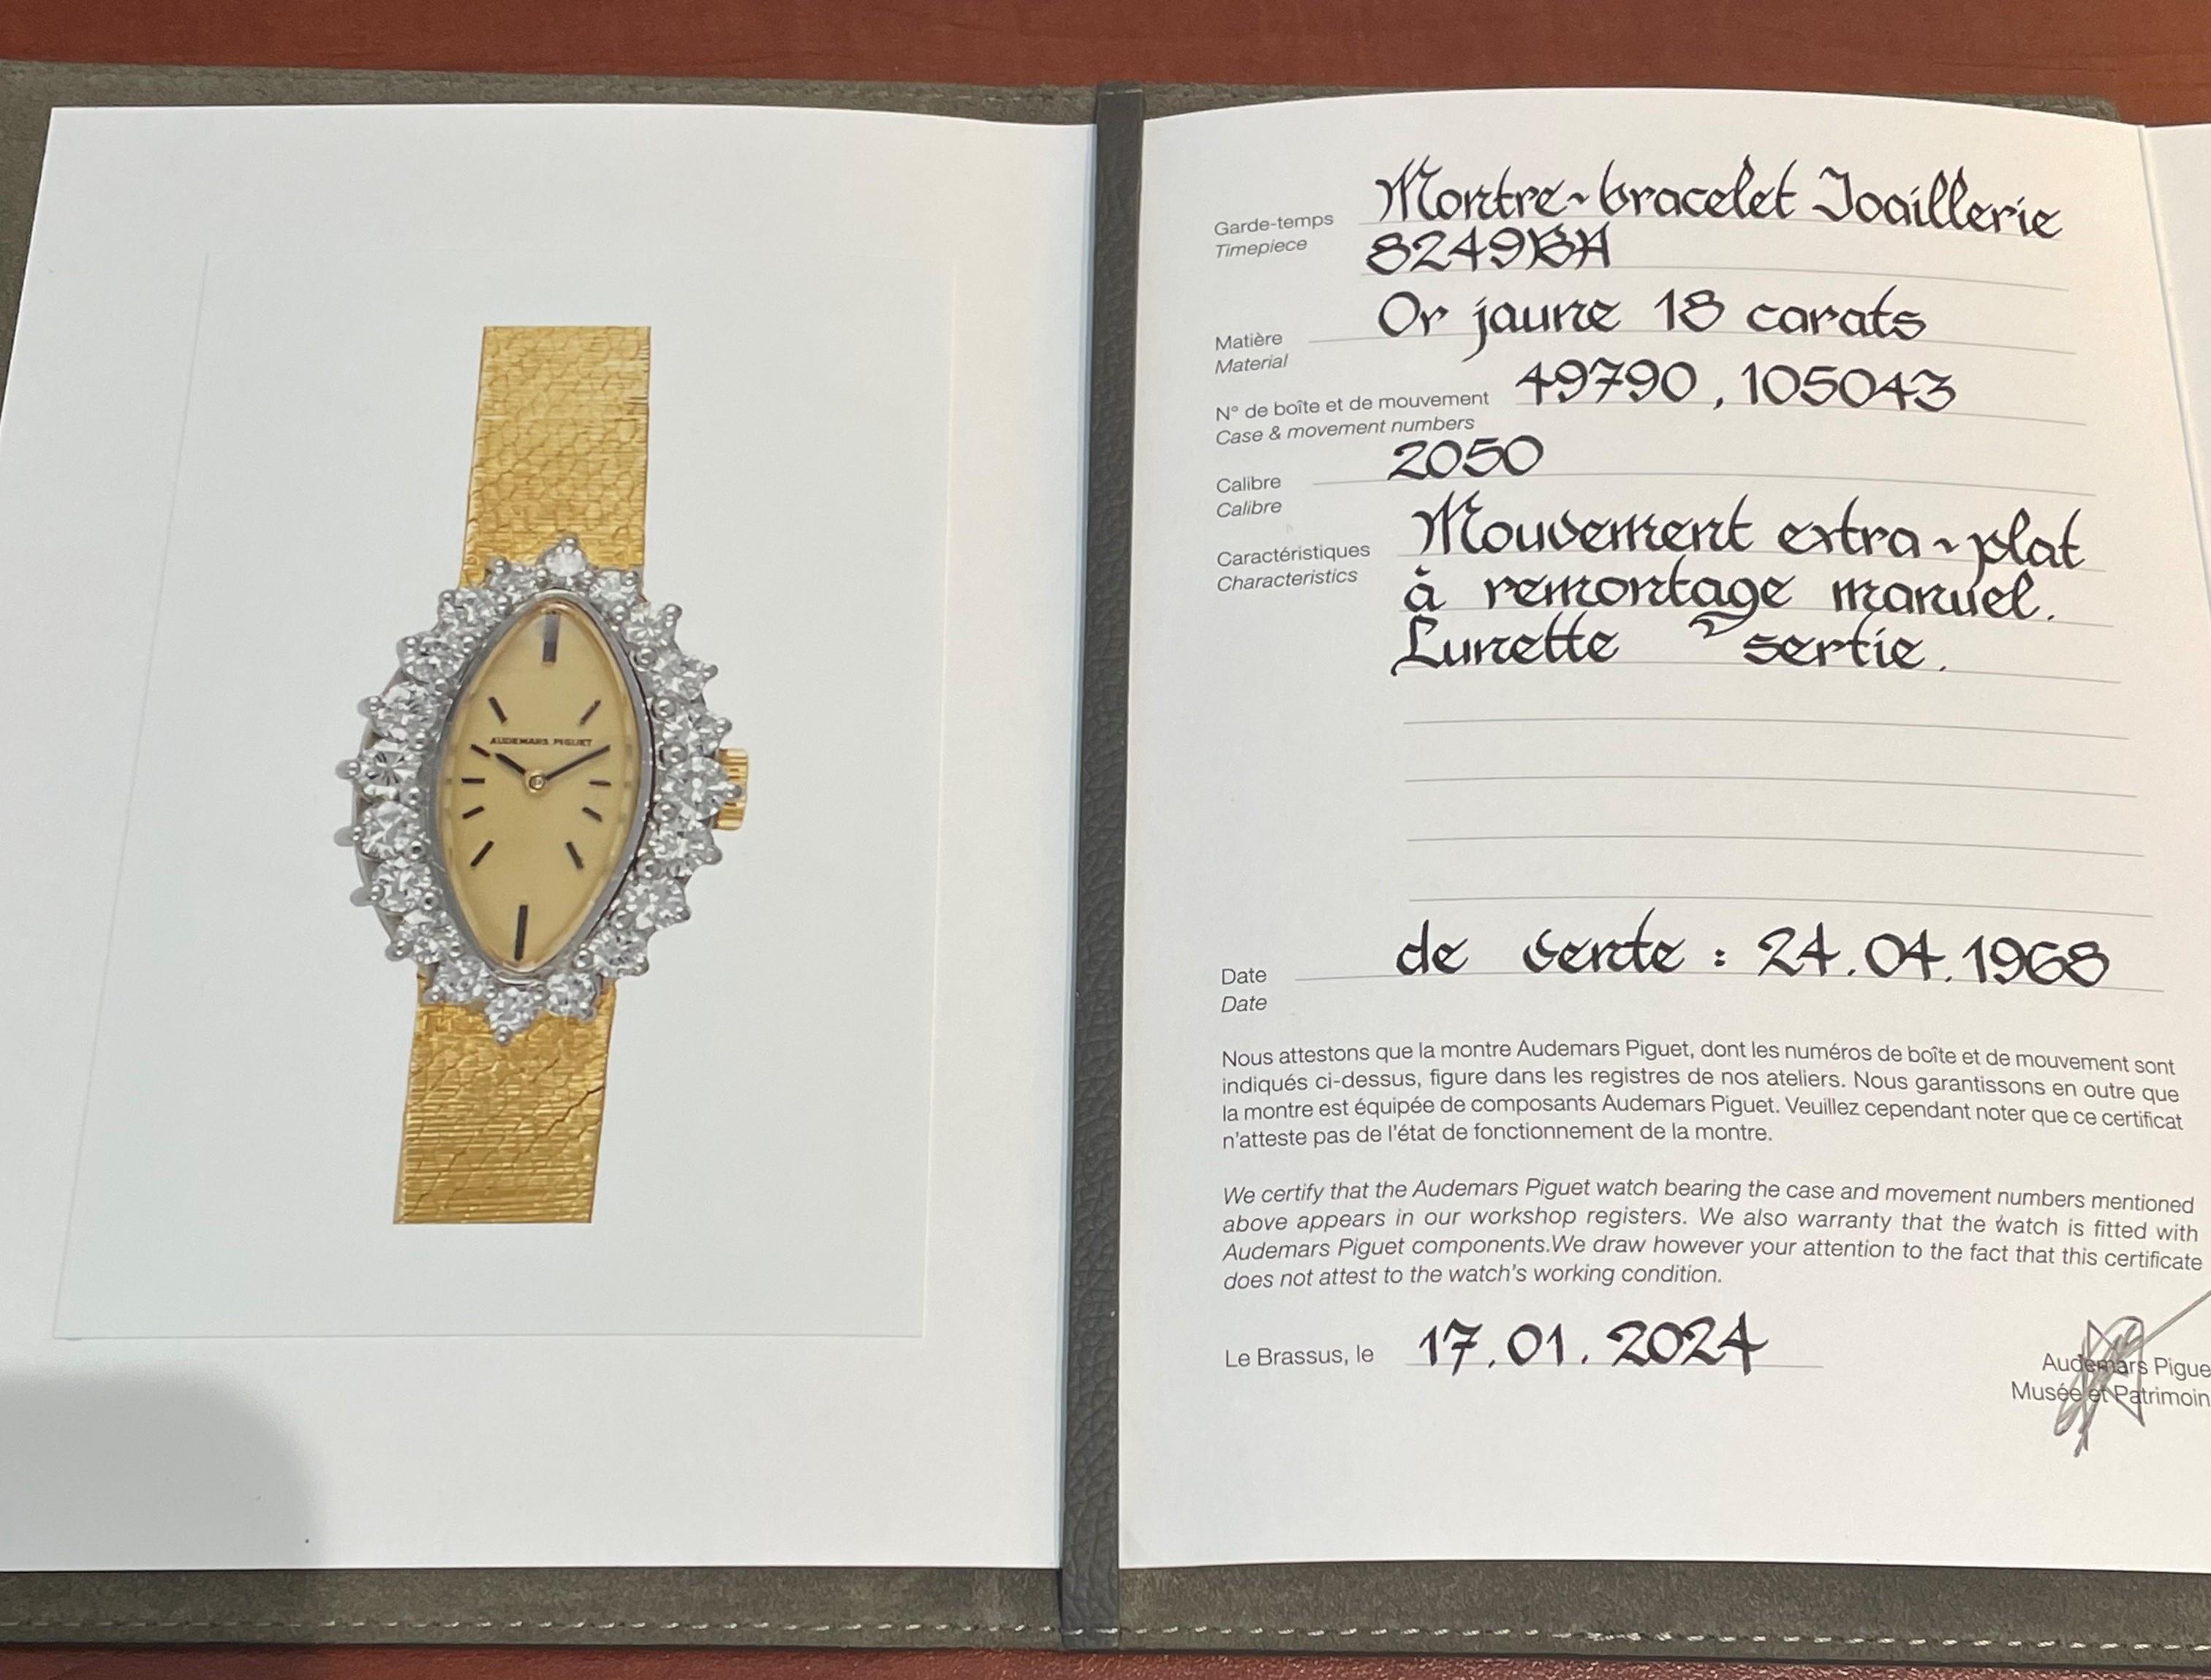 AUDEMARS PIGUET
Garde-temps Montre-bracelet Joaillerie
Timepiece 8249BA
Matière Or jaune 18 carats
Material
N° de boîte et de mouvement 49790, 105043
Case & movement numbers
Calibre 2050
Calibre
Caractéristiques Mouvement extra-plat
Characteristics à remontage manuel.
Lunette sertie.
Date de vente : 24.04.1968
Date
Nous attestons que la montre Audemars Piguet, dont les numéros de boîte et de mouvement sont
indiqués ci-dessus, figure dans les registres de nos ateliers. Nous garantissons en outre que
la montre est équipée de composants Audemars Piguet. Veuillez cependant noter que ce certificat
n'atteste pas de l'état de fonctionnement de la montre.
We certify that the Audemars Piguet watch bearing the case and movement numbers mentioned
above appears in our workshop registers. We also warranty that the watch is fitted with
Audemars Piguet components.We draw however your attention to the fact that this certificate
does not attest to the watch's working condition.
Le Brassus, le 17.01.2024
Audemars Pigue
Musée et Patrimoin